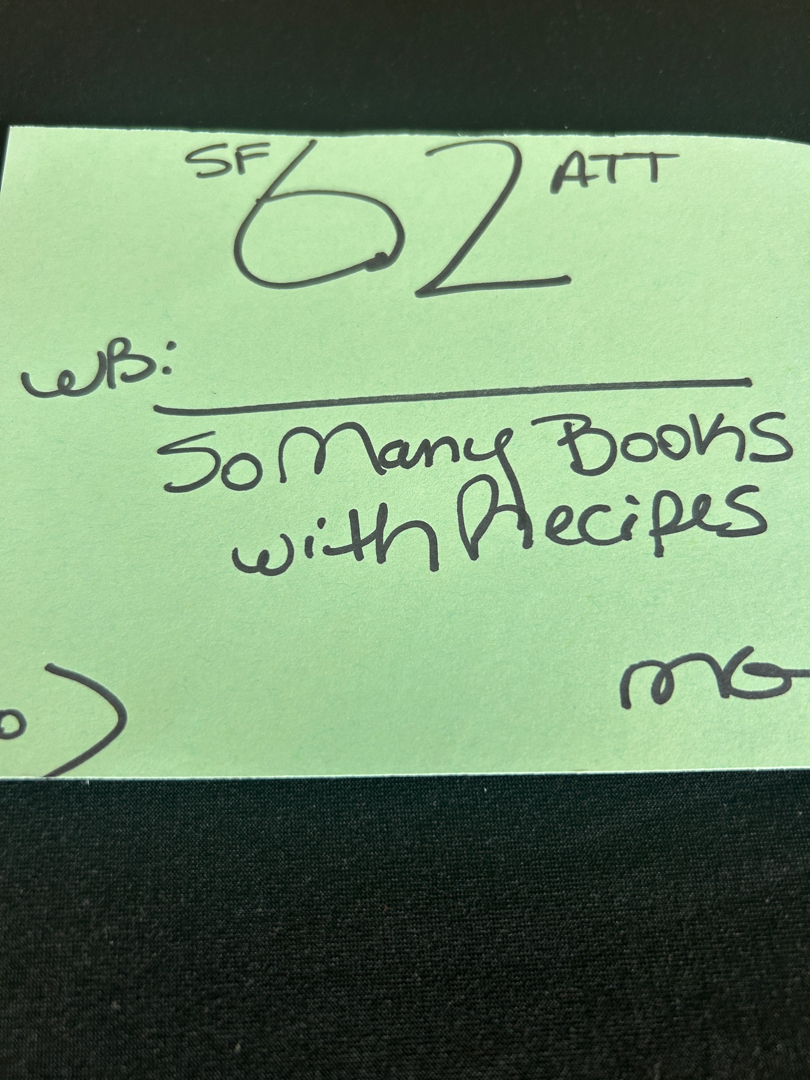 SF 62 ATT
WB:
So Many Books
with Recipes
MG